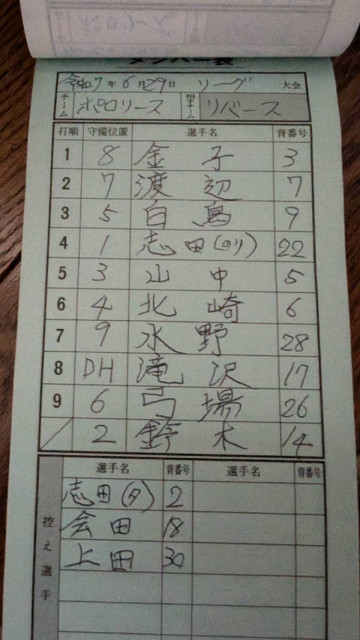 メンバー表
令和7年6月29日 リーグ 大会
チーム ポロリース 相手チーム リバース
打順 守備位置 選手名 背番号
1 8 金子 3
2 7 渡辺 7
3 5 白鳥 9
4 1 志田(のり) 22
5 3 山中 5
6 4 北崎 6
7 9 水野 28
8 DH 滝沢 17
9 6 弓場 26
2 鈴木 14
控え選手
選手名 背番号 選手名 背番号
志田(タ) 2
会田 18
上田 30